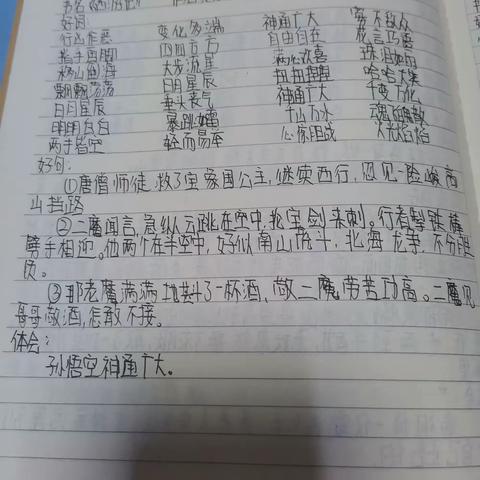 书名《西游记》
好词：
行凶作恶 变化多端 神通广大 寡不敌众
指手画脚 四四方方 自由自在 花言巧语
移山倒海 大步流星 满心欢喜 珠泪如雨
飘飘荡荡 日月星辰 扭扭捏捏 哈哈大笑
日月星辰 垂头丧气 神通广大 千变万化
明明白白 暴跳如雷 千山万水 魂飞魄散
两手空空 轻而易举 心惊胆战 火光焰焰
好句：
①唐僧师徒,救了宝象国公主,继续西行,忽见一险峻高
山挡路
②二魔闻言,急纵云跳在空中,抡宝剑来刺。行者掣铁棒
劈手相迎。他两个在半空中,好似南山虎斗,北海龙争,不分胜
负。
③那老魔满满地斟了一杯酒,敬二魔劳苦功高。二魔见
哥哥敬酒,怎敢不接。
体会：
孙悟空神通广大。